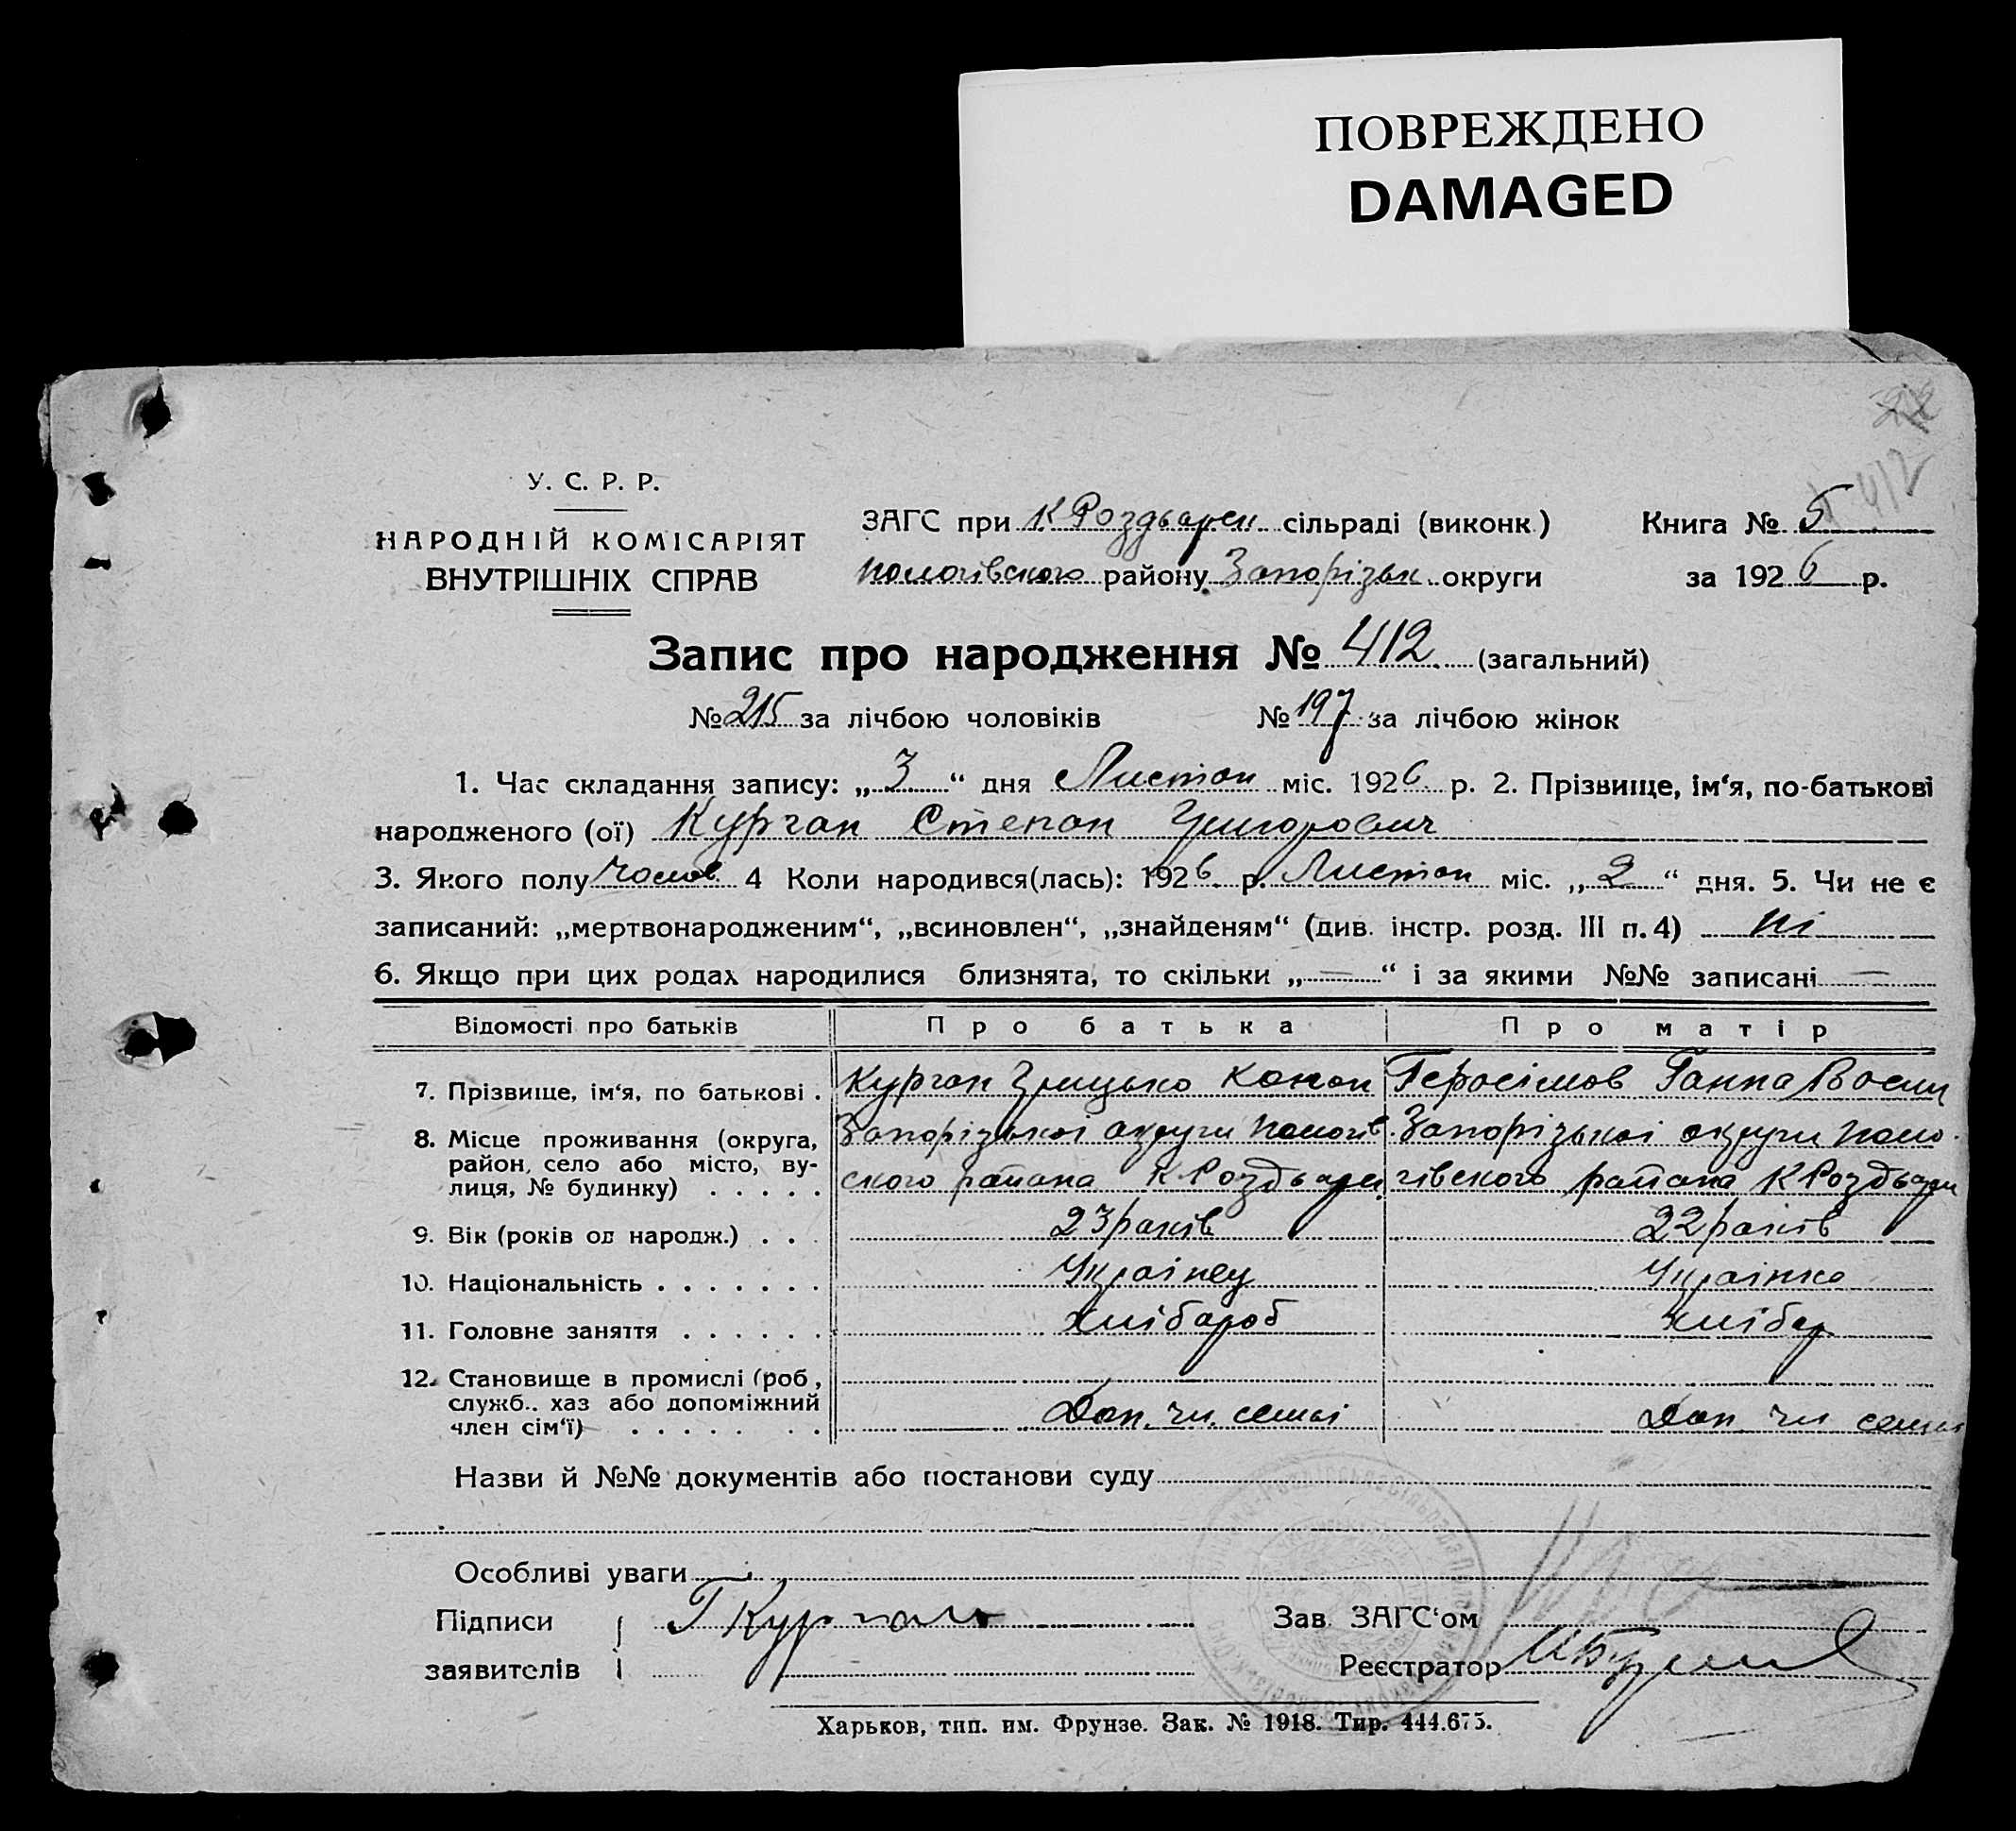 ПОВРЕЖДЕНО
DAMAGED
412
У. С. Р. Р.
НАРОДНІЙ КОМІСАРІЯТ
ВНУТРІШНІХ СПРАВ
ЗАГС при К Роздьарен сільраді (виконк.)
Пологівского району Запорізьк. округи
Книга № 5
за 1926 р.
Запис про народження № 412 (загальний)
№ 215 за лічбою чоловіків № 197 за лічбою жінок
1. Час складання запису: „3“ дня Листоп міс. 1926 р. 2. Прізвище, ім‘я, по-батькові
народженого (ої) Курган Степан Григорович
3. Якого полу чолов. 4 Коли народився(лась): 1926 р. Листоп міс. „2“ дня. 5. Чи не є
записаний: „мертвонародженим“, „всиновлен“, „знайденям“ (див. інстр. розд. III п. 4) ні
6. Якщо при цих родах народилися близнята, то скільки „—“ і за якими №№ записані —
Відомості про батьків Про батька Про матір
7. Прізвище, ім‘я, по батькові . Курган Грицько Конон Геросімов Ганна
8. Місце проживання (округа, Запорізької округи Пологів Запорізької округи Поло-
район, село або місто, ву-
лиця, № будинку) . . . . . ского района К Роздьарен гівского района К Роздьарен
9. Вік (років од народж.) . . . 23 років 22 років
10. Національність . . . . . . . Українец Українка
11. Головне заняття . . . . . . Хлібароб Хлібар
12. Становище в промислі (роб.,
служб.. хаз або допоміжний
член сім‘ї) . . . . . . . Доп. чл. семьі Доп чл семьі
Назви й №№ документів або постанови суду
Особливі уваги
Підписи Г Курган
заявителів
Зав. ЗАГС‘ом
Реєстратор
Харьков, тип. им. Фрунзе. Зак. № 1918. Тир. 444.675.